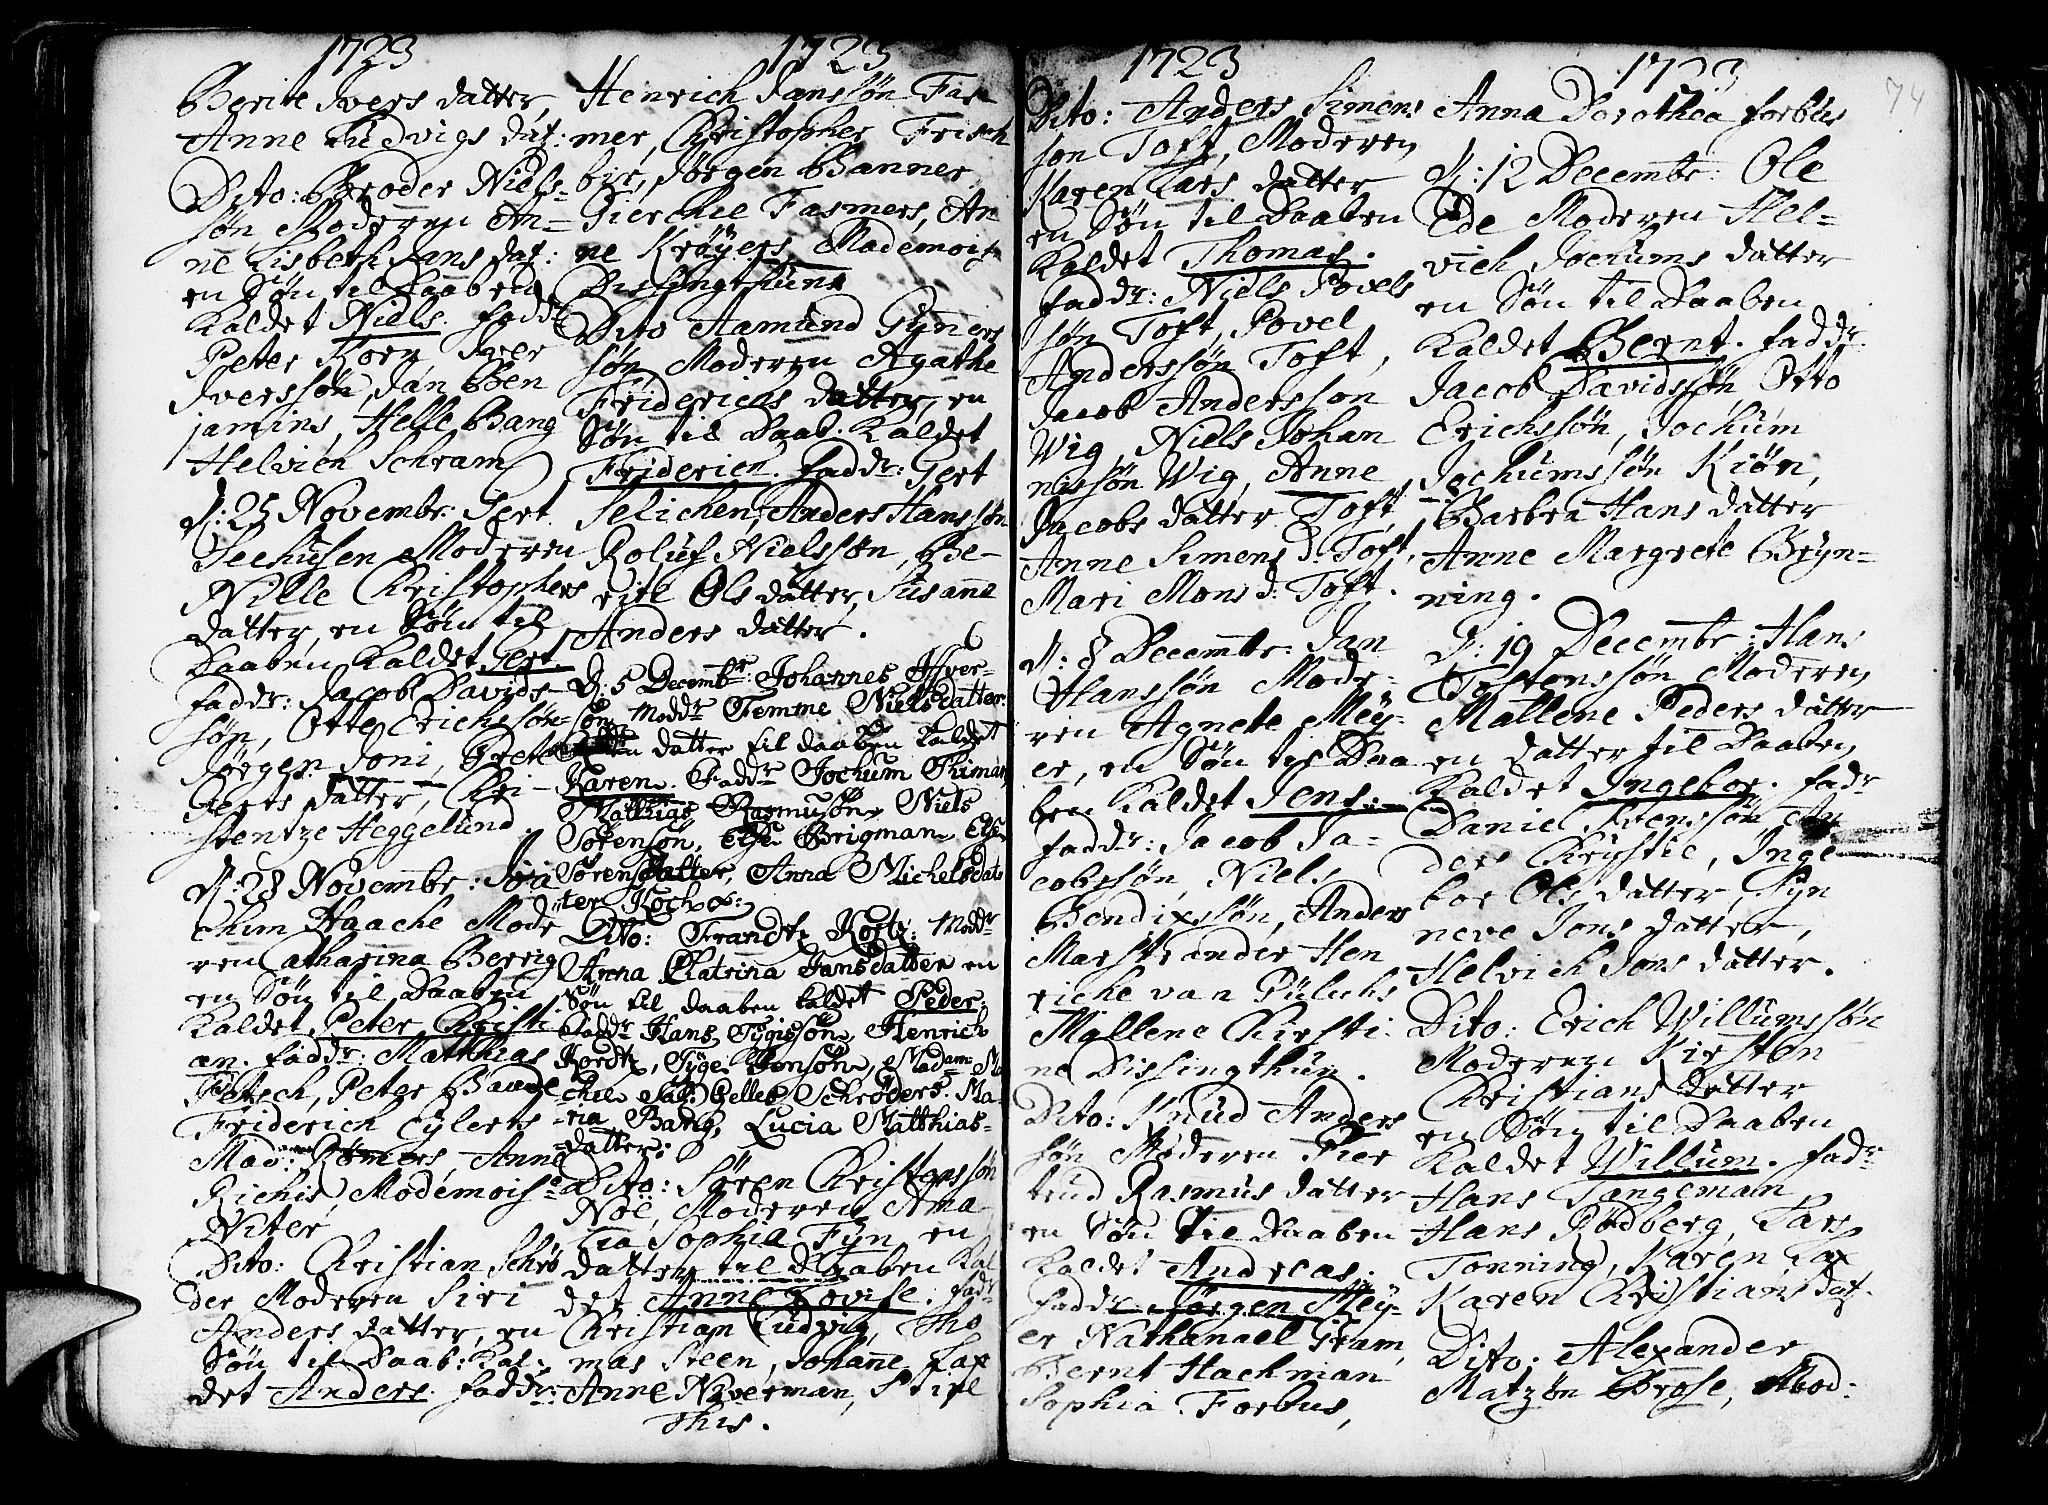 1723
Berite Ivers datter,
Anne Ludvigs dat:
Dito: Broder Niels-
søn Moderen An-
ne Lisbeth Jans dat:
en Søn til Daaben
Kaldet Niels. fadd:
Peter Korn Iver
Iverssøn, Jan Ben
jamins, Helle Bang
Helvich Schram
D: 25 Novembr: Gert
Seehusen Moderen
Nille Christophers
datter, en Søn til
Daaben Kaldet Gert
faddr: Jacob Davids-
søn, Otte Erichssøn
Jørgen Joni, Grete
Gerts datter, Chri-
stentze Heggelund.
D: 28 Novembr: Joa
chim Haache Mode
ren Catharina Berrig
en Søn til Daaben
Kaldet Peter Christi
an. faddr: Matthias
Petsch, Peter
Friderich Eylerts
Mad: Rømers, Anne
Richis, Modemoise
Niter
Dito: Christian Schrø
der Moderen Siri
Anders datter, en
Søn til Daab: Kal-
det Anders. faddr:
1723
Henrich Janssøn Fas
mer, Christopher Frisch
bir, Jørgen Banner
Gierchie Fasmers, An
ne Krøyers, Mademois
Dissingthuns
Dito Aamund Gynners
søn Moderen Agathe
Friderichs datter, en
Søn til Daab: Kaldet
Friderich. faddr: Gert
Selichen, Anders Hanssøn
Roluf Nielssøn, Be-
rite Ols datter, Susanne
Anders datter.
D: 5 Decembr: Johannes Ifver-
søn Moddr Temme Nielsdatter
en datter til daaben kaldet
Karen. Faddr Jochum Thiman
Matthias Rasmusøn Niels
Sørensøn, Else Brigman, Else
Sørensdatter, Anna Michelsdat
ter Koch
Dito: Frandtz Kortz: Moddr
Anna Chatrina Jansdatter en
Søn til daaben kaldet Peder:
Faddr Hans Tygesøn, Henrich
Kordtz, Tyge Jensøn, Madam Ma
chie Sal: Pelles Schrøders. Ma-
ria Bang, Lucia Matthias-
datter:
Dito: Søren Christenssøn
Noe, Moderen Ama
lia Sophia Fyn en
datter til Daaben Kal
det Anne Lovise. fadr
Christian Ludvig, Tho
mas Steen, Johanne Fax
Anne Neverman, Stine
This.
1723
Dito: Anders Simens
søn Toft, Moderen
Karen Lars datter
en Søn til Daaben
Kaldet Thomas.
faddr: Niels Povels
søn Toft, Povel
Anderssøn Toft,
Jacob Anderssøn
Wig, Niels Johan
nissøn Wig, Anne
Jacobs datter Toft
Anne Simens d: Toft,
Mari Mons d: Toft.
D: 8 Decembr: Jan
Hanssøn Mode-
ren Agnete Mey-
er, en Søn til Daa
ben Kaldet Jens.
faddr: Jacob Ja-
cobssøn, Niels
Bendixssøn, Anders
Marstrander Hen
riche van Pulichs
Mallene Chirsti-
ne Dissingthun.
Dito: Knud Anders
søn Moderen Gier
trud Rasmus datter
en Søn til Daaben
Kaldet Andreas.
faddr: Jørgen Mey-
er, Nathanael Gram,
Bernt Hachman
Sophia Forbus,
1723
74
Anna Dorothea forbus
D: 12 Decembr: Ole
Ede Moderen Hel-
vich Jochums datter
en Søn til Daaben
Kaldet Bernt. faddr.
Jacob Davidssøn, Otto
Erichssøn, Jochum
Jochumssøn Kiøn,
Barbra Hans datter
Anne Margrete Bryn-
ning.
D: 19 Decembr: Hans
Tostenssøn Moderen
Mallene Peders datter
en datter til Daaben
Kaldet Ingebor. fadr
Daniel Svenssøn An
ders Chrystie, Inge
bor Ols datter, Syn
neve Jons datter,
Helvich Jons datter.
Dito: Erich Willumssøn
Moderen Kirsten
Christians datter
en Søn til Daaben
Kaldet Willum. fadr
Hans Tangeman
Hans Rødberg, Lars
Tønning, Karen Fax
Karen Christians dat.
Dito: Alexander
Matzøn Brose, Mod: